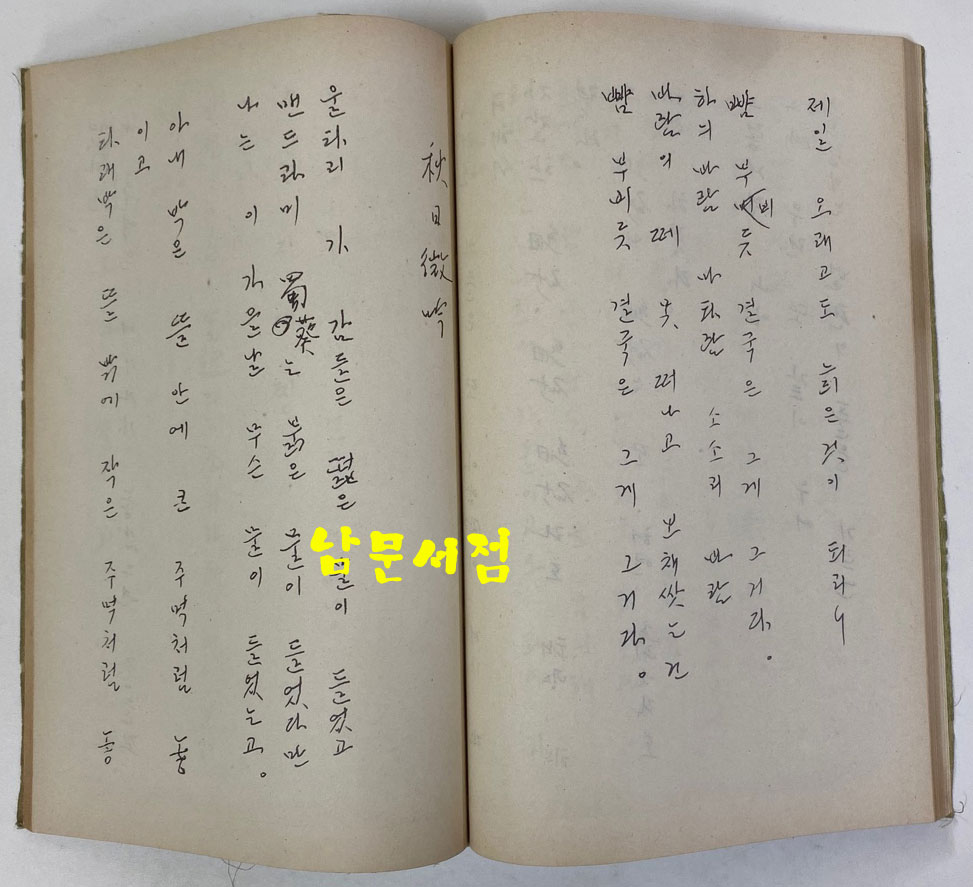 제일 오래고도 늙은것이 되리니
뺨 부비듯 결국은 그게 그거라.
하늬 바람 마파람 소소리 바람
바람의 떼 못 떠나고 보채쌋는건
뺨 부비듯 결국은 그게 그거라.
秋日微吟
울타리 가 감들은 떫은 물이 들었고
맨드라미 蜀葵는 붉은 물이 들었다만
나는 이 가을날 무슨 물이 들었는고.
아내 박은 뜰 안에 큰 주먹처럼 놓
이고
타래박은 뜰 밖에 작은 주먹처럼 놓
남문서점